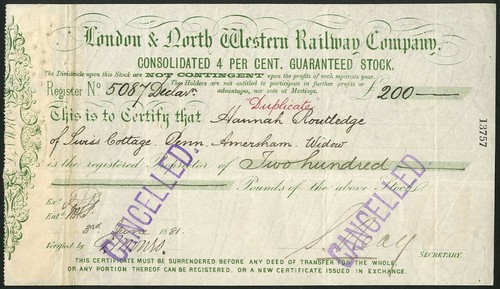 London & North Western Railway Company.
CONSOLIDATED 4 PER CENT. GUARANTEED STOCK.
The Dividends upon this Stock are NOT CONTINGENT upon the profits of each separate year.
The Holders are not entitled to participate in further profits or
advantages, nor vote at Meetings.
Register No. 5087 Declar. £200
Duplicate
This is to Certify that Hannah Routledge
of Swiss Cottage, Penn, Amersham, Widow
is the registered Proprietor of Two hundred
Pounds of the above Stock.
Exd.
Entd.
3rd June 1881.
Verified by
SECRETARY.
CANCELLED.
CANCELLED.
13757
THIS CERTIFICATE MUST BE SURRENDERED, BEFORE ANY DEED OF TRANSFER FOR THE WHOLE,
OR ANY PORTION THEREOF CAN BE REGISTERED, OR A NEW CERTIFICATE ISSUED IN EXCHANGE.